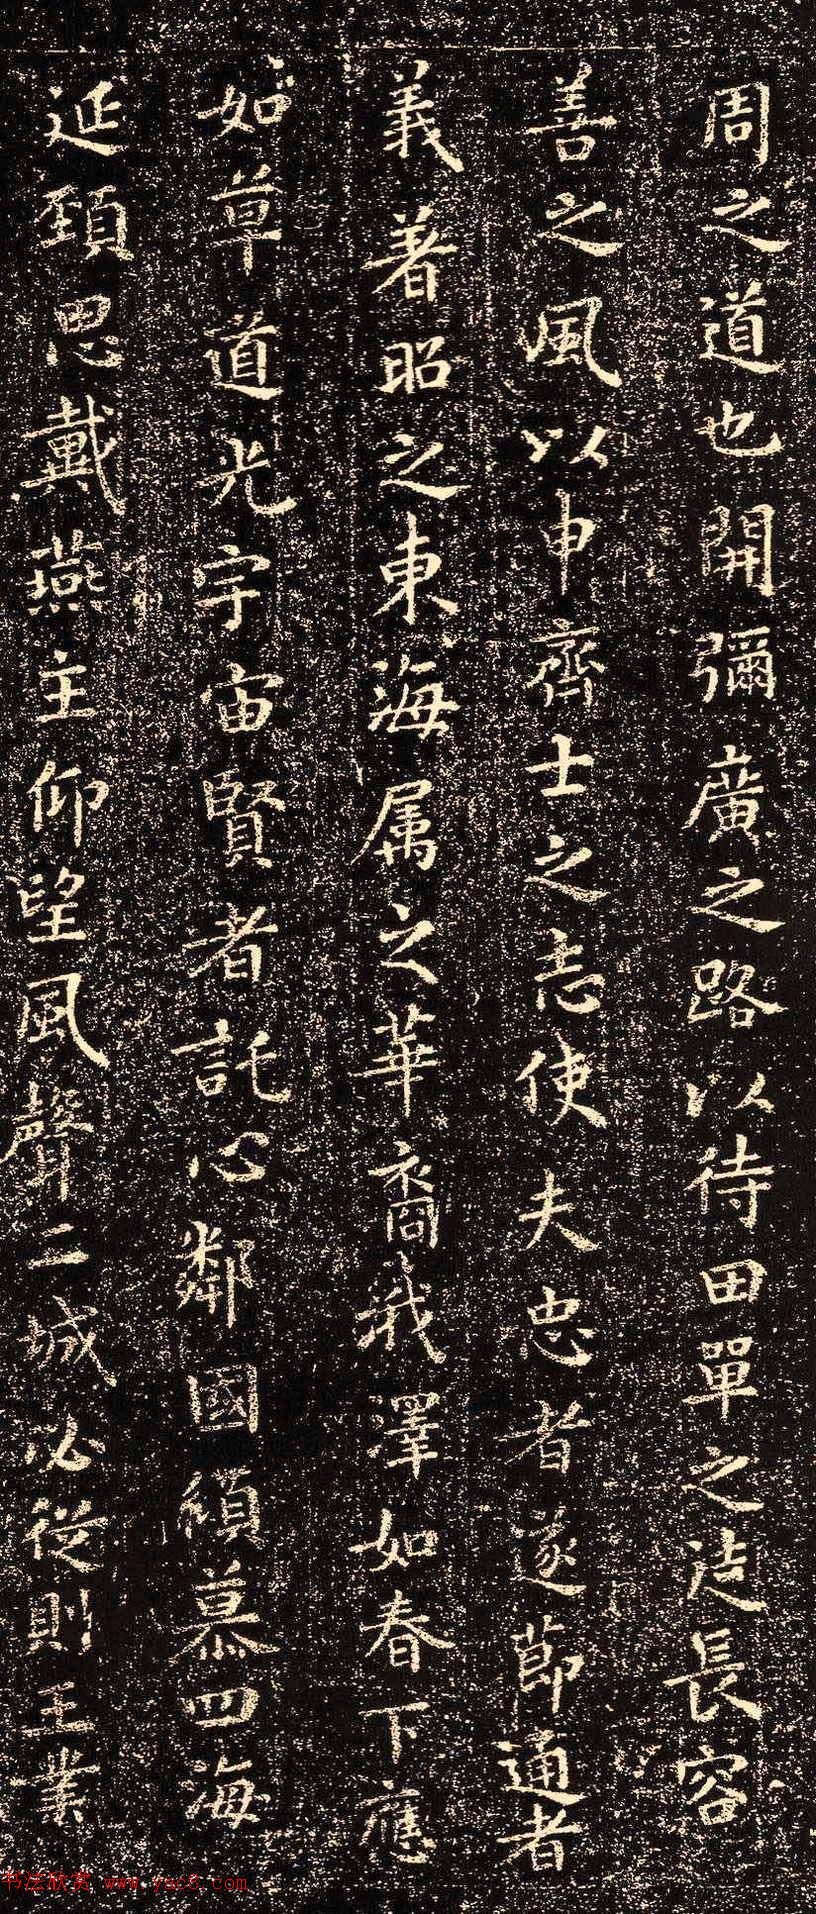 周之道也開彌廣之路以待田單之徒長容
善之風以申齊士之志使夫忠者遂節通者
義著昭之東海属之華裔我澤如春下應
如草道光宇宙賢者託心鄰國傾慕四海
延頸思戴燕主仰望風聲二城必從則王業
书法欣赏 www.yac8.com